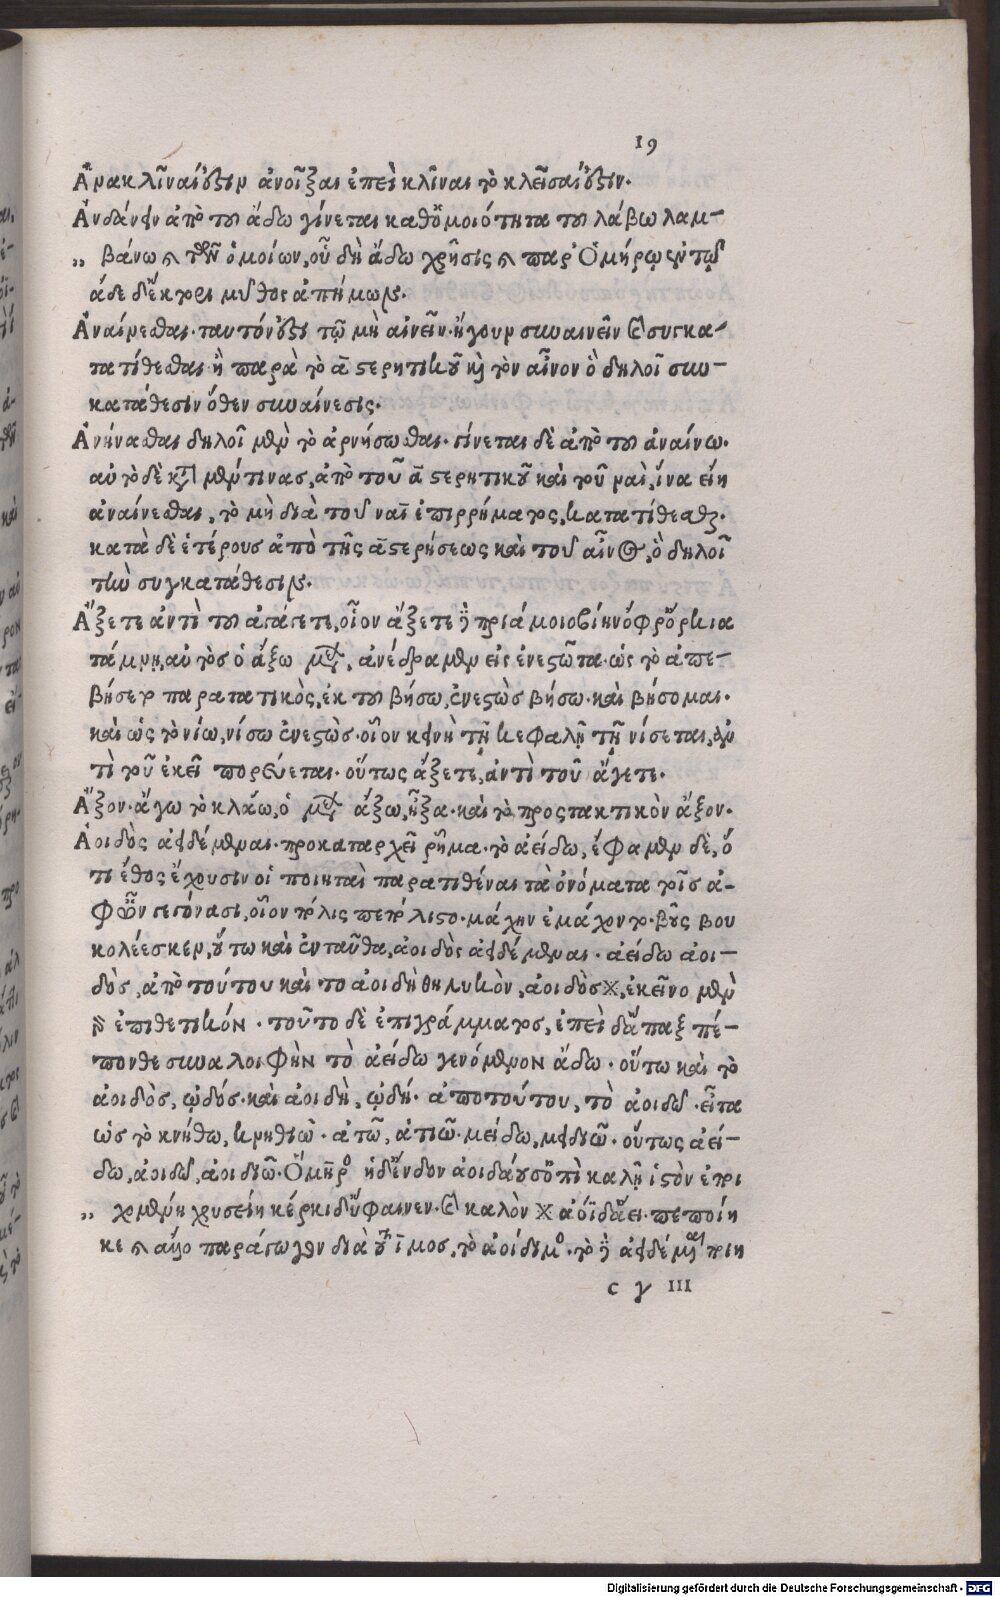 19
Ἀνακλῖναί ἐστιν ἀνοῖξαι ἐπεὶ κλῖναι τὸ κλεῖσαί ἐστιν.
Ἁνδάνειν ἀπὸ τοῦ ἅδω γίνεται καθ' ὁμοιότητα τοῦ λάβω λαμ-
,, βάνω καὶ τῶν ὁμοίων, οὗ δὴ ἅδω χρῆσις καὶ παρ' Ὁμήρῳ ἐν τῷ
ἅδε δ' ἕκτορι μῦθος ἀπήμων.
Ἀναίνεσθαι· ταυτόν ἐστι τῷ μὴ αἰνεῖν· ἤγουν συναινεῖν καὶ συγκα-
τατίθεσθαι· ἢ παρὰ τὸ α στερητικοῦ καὶ τὸν αἶνον ὃ δηλοῖ συγ-
κατάθεσιν ὅθεν συναίνεσις.
Ἀνήνασθαι δηλοῖ μὲν τὸ ἀρνήσασθαι· γίνεται δὲ ἀπὸ τοῦ ἀναίνω·
αὐτὸ δὲ κατὰ μέν τινας, ἀπὸ τοῦ α στερητικοῦ καὶ τοῦ ναὶ, ἵνα εἴη
ἀναίνεσθαι, τὸ μὴ διὰ τοῦ ναὶ ἐπιρρήματος, κατατίθεσθαι·
κατὰ δὲ ἑτέρους ἀπὸ τῆς α στερήσεως καὶ τοῦ αἶνος, ὃ δηλοῖ
τὴν συγκατάθεσιν.
Ἄξετε ἀντὶ τοῦ ἀγάγετε, οἷον ἄξετε δὲ πριάμοιο βίην ὄφρ' ὅρκια
τάμνῃ, αὐτὸς ὁ ἄξω μέλλων, ἀνέδραμεν εἰς ἐνεστῶτα· ὡς τὸ ἀπε-
βήσετο παρατατικὸς, ἐκ τοῦ βήσω, ἐνεστὼς βήσω· καὶ βήσομαι·
καὶ ὡς τὸ νίω, νίσω ἐνεστὼς· οἷον κείνῃ τῇ κεφαλῇ τῇ νίσεται, ἀν
τὶ τοῦ ἐκεῖ πορεύεται· οὕτως ἄξετε, ἀντὶ τοῦ ἄγετε.
Ἆξον· ἄγω τὸ κλάω, ὁ μέλλων ἄξω, ἦξα· καὶ τὸ προστακτικὸν ἆξον.
Ἀοιδὸς ἀειδέμεναι· προκαταρχεῖ ῥῆμα· τὸ ἀείδω, ἔφαμεν δὲ, ὅ
τι ἔθος ἔχουσιν οἱ ποιηταὶ παρατιθέναι τὰ ὀνόματα τοῖς ἀ-
φ' ὧν γεγόνασι, οἷον πόλις πεπόλιστο· μάχην ἐμάχοντο· βοῦς βου
κολέεσκεν, οὕτω καὶ ἐνταῦθα, ἀοιδὸς ἀειδέμεναι· ἀείδω ἀοι-
δὸς, ἀπὸ τούτου καὶ το ἀοιδὴ θηλυκὸν, ἀοιδὸς δὲ, ἐκεῖνο μὲν
ἐπιθετικόν· τοῦτο δὲ ἐπιγράμματος, ἐπεὶ δ' ἅπαξ πέ-
πονθε συναλοιφὴν τὸ ἀείδω γενόμενον ᾄδω· οὕτω καὶ τὸ
ἀοιδὸς, ᾠδός· καὶ ἀοιδὴ, ᾠδή· ἀπὸ τούτου, τὸ ἀοιδῶ· εἶτα
ὡς τὸ κνήθω, κνηθιῶ· ἀτῶ, ἀτιῶ· μείδω, μειδιῶ· οὕτως ἀεί-
δω, ἀοιδῶ, ἀοιδιῶ· Ὅμηρος ἡ δ' ἔνδον ἀοιδιάουσ' ὀπὶ καλῇ ἱστὸν ἐποι
,, χομένη χρυσείῃ κέρκιδ' ὕφαινεν· καὶ καλὸν δὲ ἀοϊδιάει· πεποίη
κε καὶ ἄλλο παράγωγον διὰ τοῦ ιμος, τὸ ἀοίδιμος· τὸ δὲ ἀειδέμεναι ποιη
c γ III
Digitalisierung gefördert durch die Deutsche Forschungsgemeinschaft - DFG